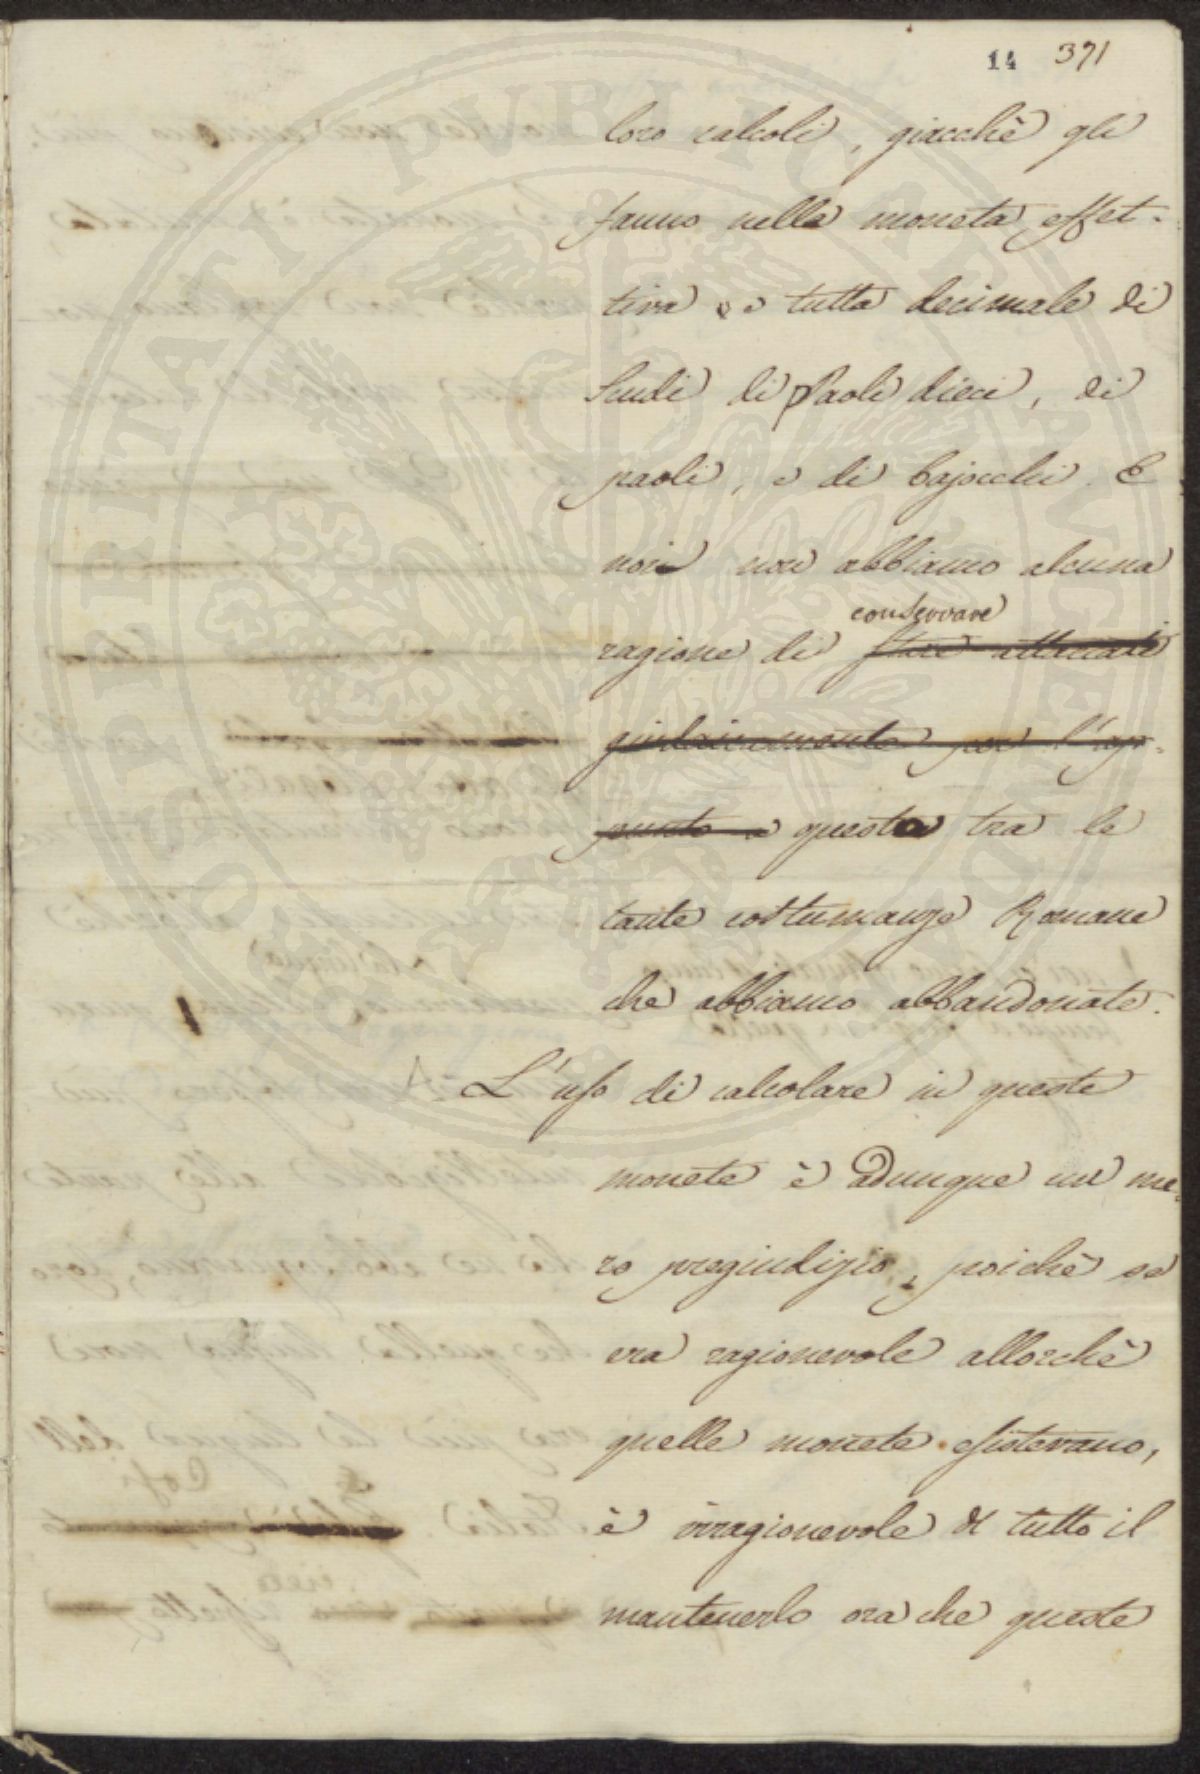 14 371
loro calcoli, giacchè gli
fanno nella moneta effet-
tiva, e tutta decimale di
Scudi di Paoli dieci, di
paoli, e di bajocchi. E
noi non abbiamo alcuna
conservare
ragione di stare attaccati
per l'ap-
punto a questa tra le
tante costumanze Romane
che abbiamo abbandonate.
L'uso di calcolare in queste
monete è adunque un me-
ro pregiudizio, poichè se
era ragionevole allorchè
quelle monete esistevano,
è irragionevole del tutto il
mantenerlo ora che queste
PROSPERITATI PVBLICAE AVGENDAE